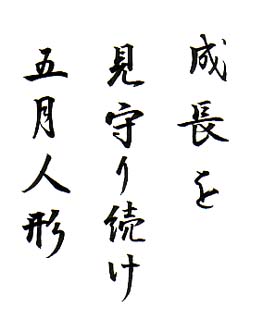 成長を
見守り続け
五月人形